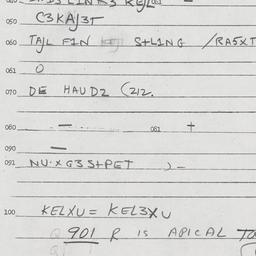 050 C3KAJ3T
060 TAJL F1N S+L1NG /RA5XT
061 O
070 DE HAUDZ (212.
080 — 081 +
090 —
091 NU·X G3 S+PET ) –
100 KELXU = KEL3XU
901 R IS APICAL